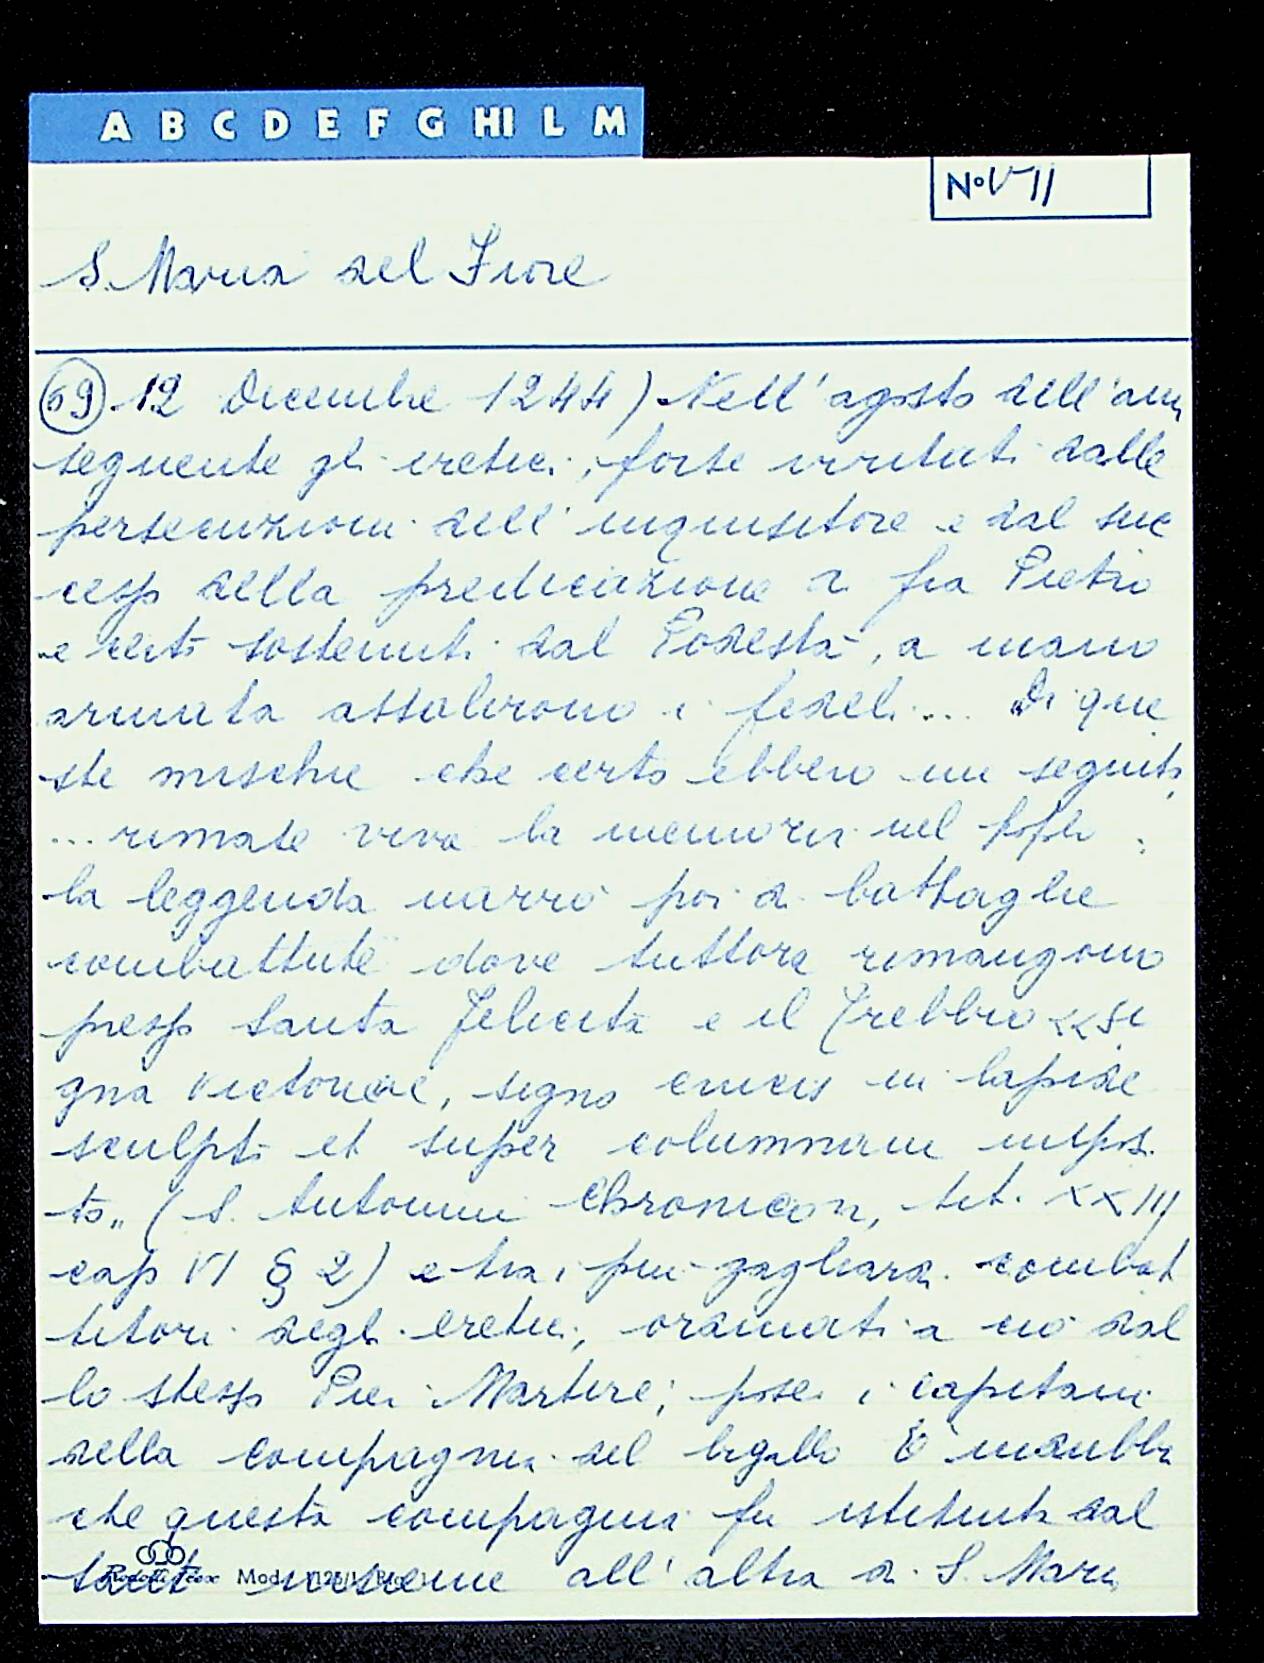 A B C D E F G HI L M
No VII
S. Maria del Fiore
69 12 Decembre 1244) Nell'agosto dell'ann
seguente gli eretici, forse irritati dalle
persecuzioni dell'inquisitore e dal suc
cesso della predicazione di fra Pietro
e certo sostenuti dal Podestà, a mano
armata assalirono i fedeli.... Di que
ste mischie che certo ebbero un seguito
... rimase viva la memoria nel popolo ;
la leggenda narrò poi di battaglie
combattute dove tuttora rimangono
presso Santa Felicita e il Trebbio <<Si
gna victoriae, signo crucis in lapide
sculpto et super columnam inposi
to,, (S. Antonini Chronicon, tit. XXIII
cap VI § 2) e tra i più gagliardi combat
titori degli eretici, ordinati a ciò dal
lo stesso Pier Martire; pose i capitani
della compagnia del bigallo È indubbio
che questa compagnia fu istituita dal
insieme all'altra di S. Maria